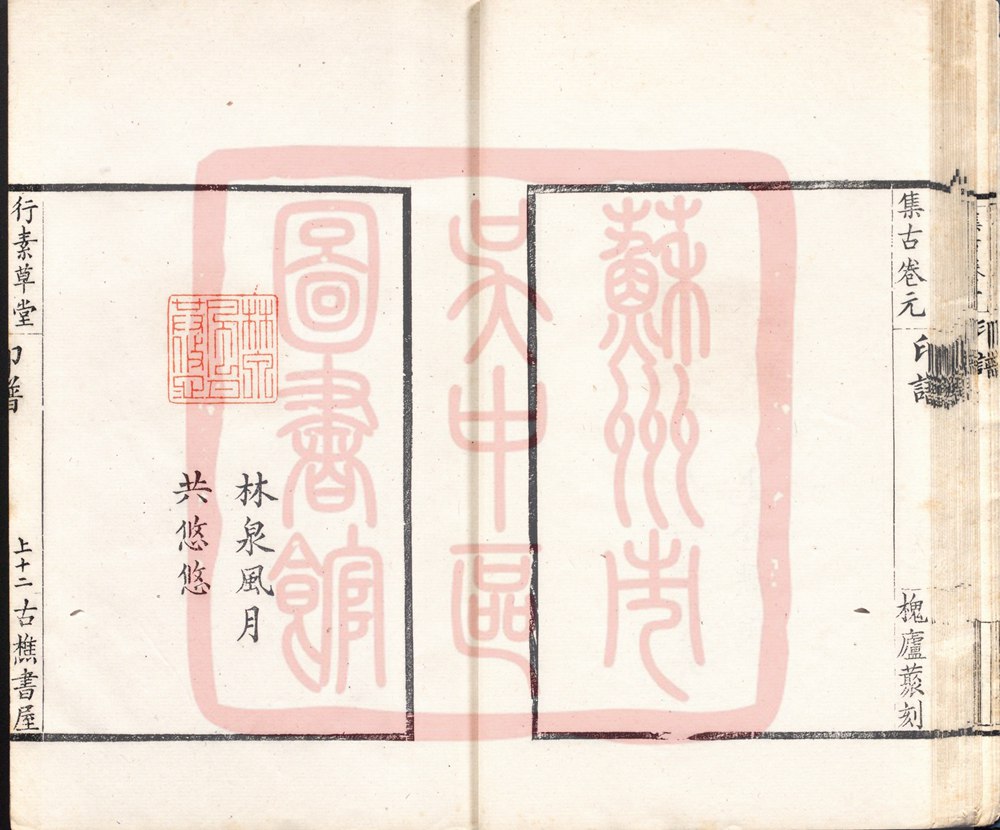 集古卷元
印譜
槐廬叢刻
蘇州市
吳中区
圖書館
林泉風月
共悠悠
林泉風月
共悠悠
行素草堂
印譜
上十二
古樵書屋